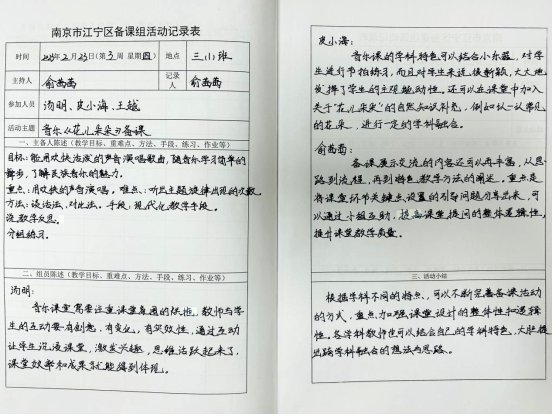 南京市江宁区备课组活动记录表
时间 2023年2月23日(第3周 星期四) 地点 三小班
主持人 俞茜茜 记录人 俞茜茜
参加人员 汤明、皮小海、王越
活动主题 音乐《花儿朵朵》备课
一、主备人陈述(教学目标、重难点、方法、手段、练习、作业等)
目标:能用欢快活泼的声音演唱歌曲,随音乐学习简单的
舞步,了解民族音乐的魅力。
重点:用欢快的声音演唱。难点:听出主题旋律出现的次数
方法:谈话法、对比法。手段:现代化教学手段。
没教学反思。
分组练习。
二、组员陈述(教学目标、重难点、方法、手段、练习、作业等)
汤明:
音乐课堂需要注重课堂氛围的烘托,教师与学
生的互动要有创意,有变化,有实效性,通过互动
让学生沉浸课堂,激发兴趣,思维活跃起来了,
课堂效率和成果就能得到体现。
皮小海:
音乐课的学科特色可以结合小乐器,对学
生进行节拍练习,而且对学生来说,很新颖,大大地
发挥了学生的主观能动性。还可以在课堂中加入
关于“花儿朵朵”的自然知识补充,例如认一认常见
的花朵,进行一定的学科融合。
俞茜茜:
备课展示交流的内容还可以再丰富,从思
路到流程,再到特色教学方法的阐述。重点是
将课堂环节关键点设置的引导问题分享出来,可
以通过小组互助,提高课堂提问的整体逻辑性,
提升课堂教学质量。
三、活动小结
根据学科不同的特点,可以不断完善备课活动
的方式,重点加强课堂设计的整体性和逻辑
性。各学科教师也可以结合自己的学科特色,大胆提
出跨学科融合的想法与思路。